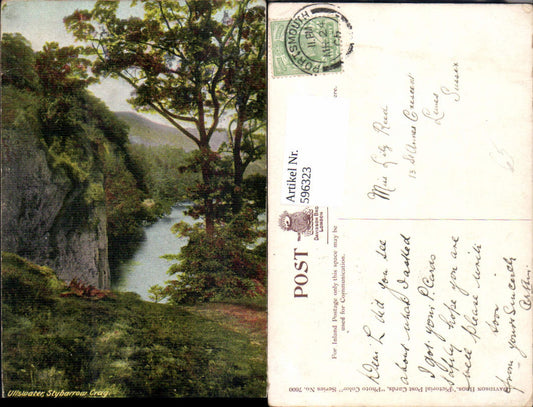 Ullswater, Stybarrow Crag.
PORTSMOUTH
Artikel Nr.
596323
DAVIDSON BROS
LONDON
POST
For Inland Postage only this space may be
used for Communication.
DAVIDSON BROS.' Pictorial Post Cards. "Photo Color" Series No. 7600
Miss Reed
13 St Annes Crescent
Lewes
Sussex
Dear L did you see
about what I asked
I got your P. Cards
hope you are
well Please write
soon
from yours Sincerely
Arthur